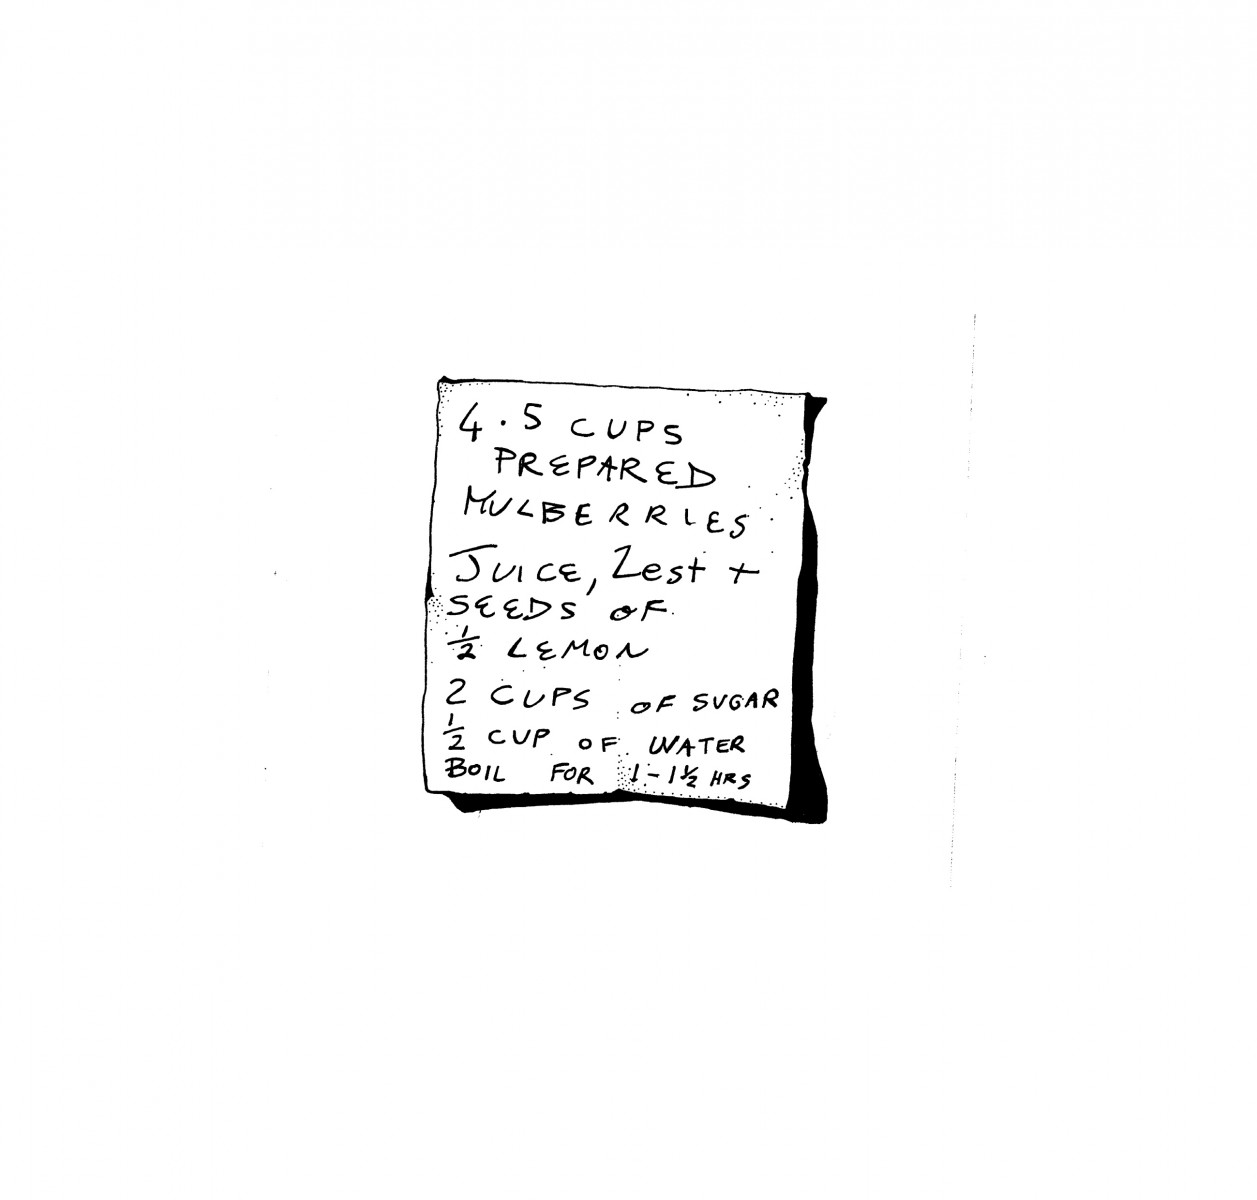 4.5 CUPS
PREPARED
MULBERRIES
JUICE, Zest +
SEEDS OF
½ LEMON
2 CUPS OF SUGAR
½ CUP OF WATER
BOIL FOR 1-1½ HRS